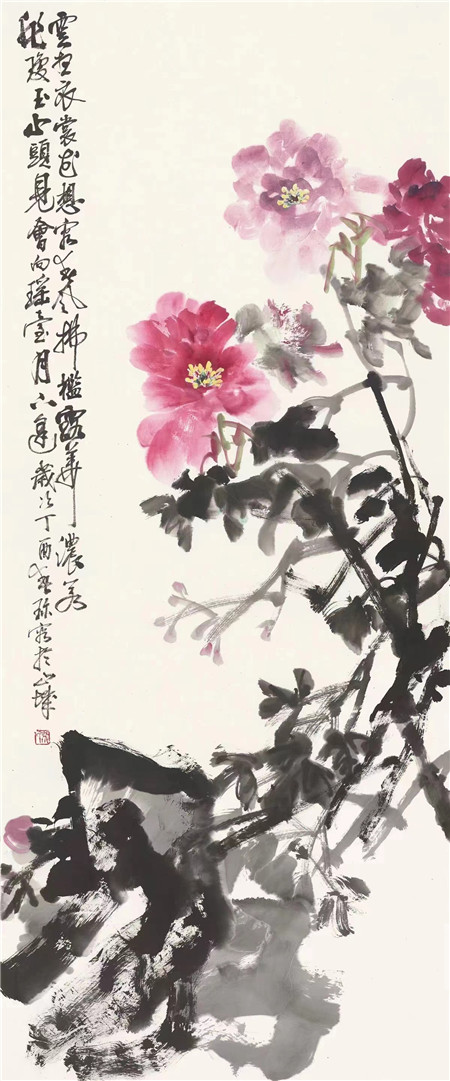 雲想衣裳花想容春風拂檻露華濃若
非瓊玉山頭見會向瑤臺月下逢歲次丁酉春寫於山城